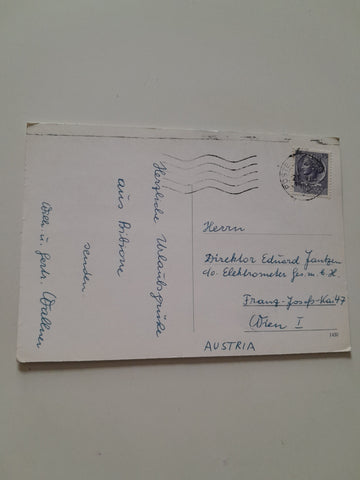 Herzliche Urlaubsgrüße
aus Bibione
senden
Willi u. Gert. Wallner
Herrn
Direktor Eduard Jantzen
c/o. Elektrometer Ges. m. b. H.
Franz-Josefs-Kai 47
Wien I
AUSTRIA
1450